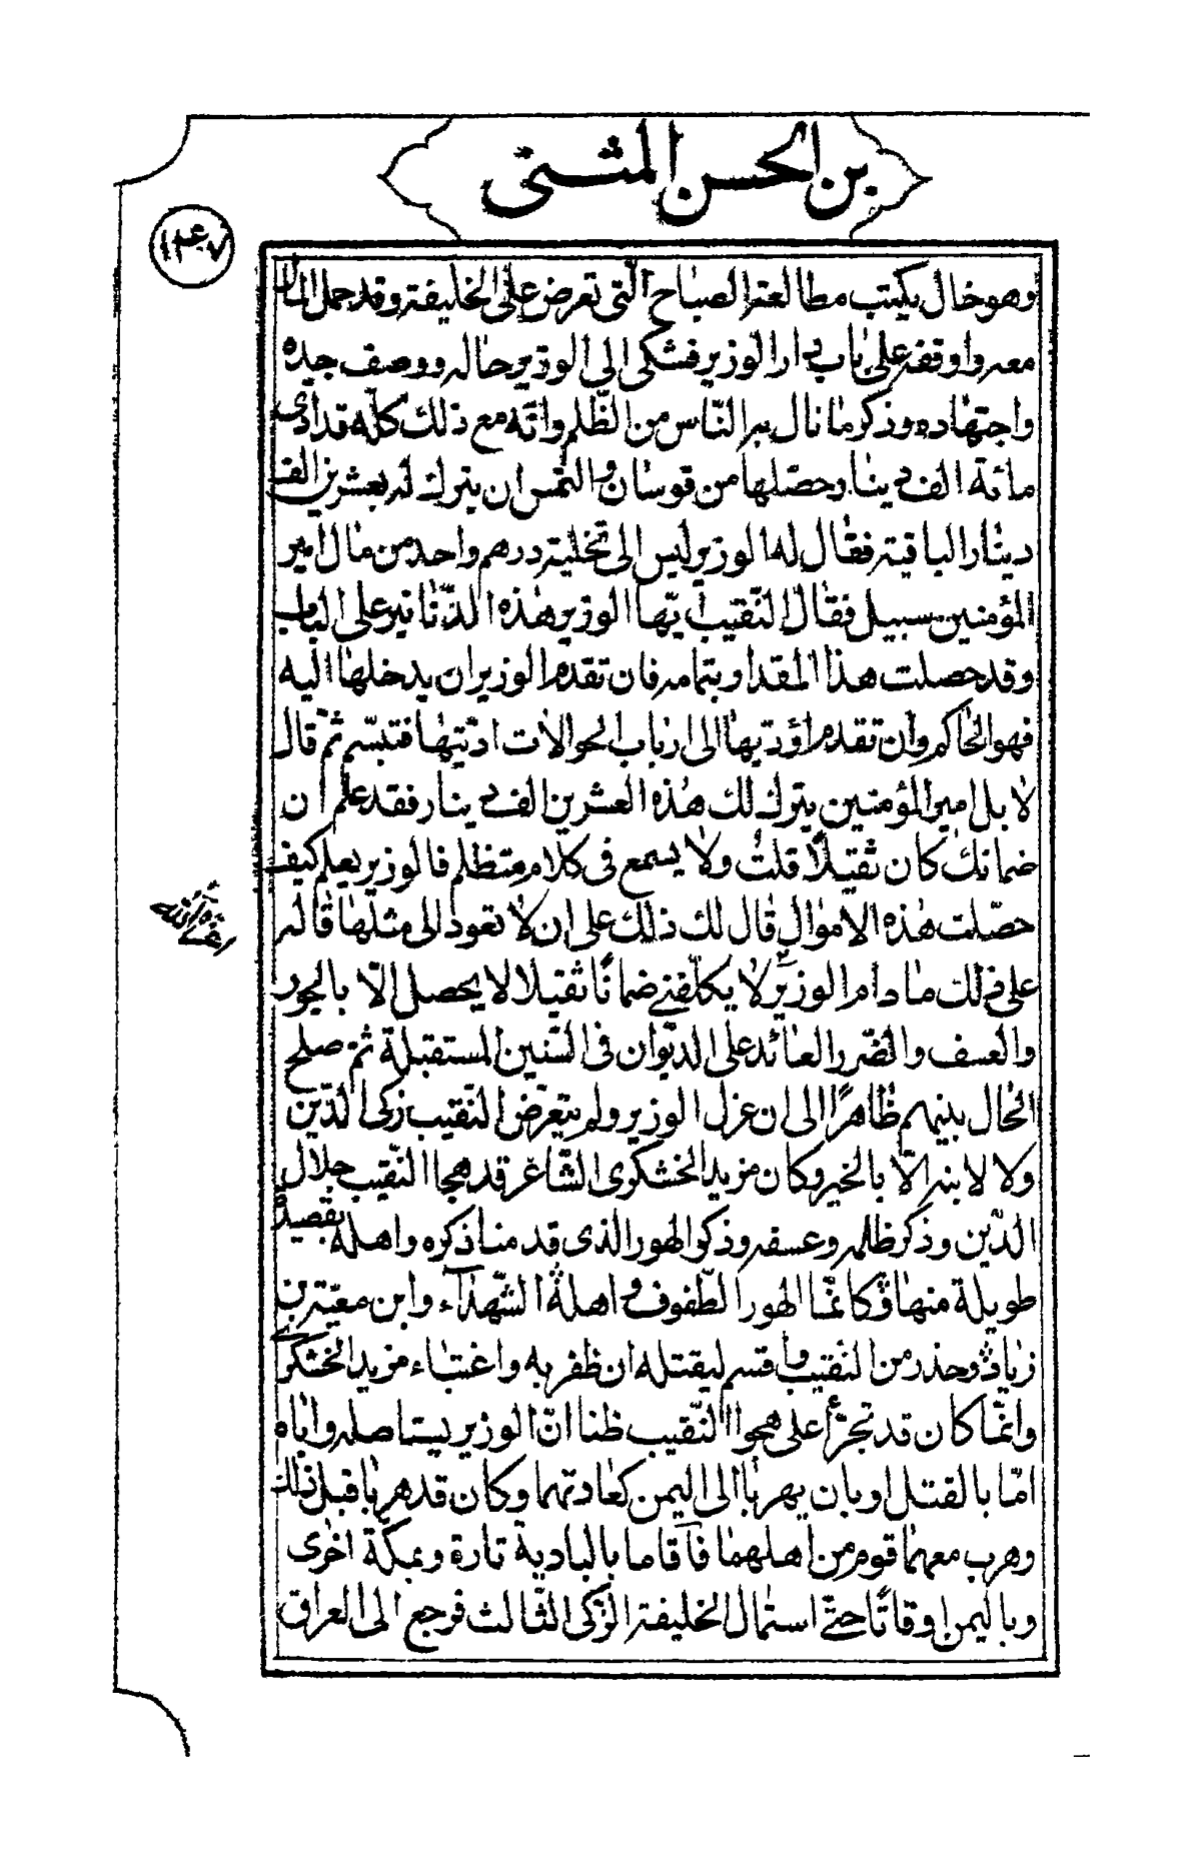 بن الحسن المثنى
١٤٧
وهو خال يكتب مطالعة الصباح التى تعرض على الخليفة وقد حمل المال
معه واوقفه على باب دار الوزير فشكى الى الوزير حاله ووصف جده
واجتهاده وذكر ما نال به الناس من الظلم وانه مع ذلك كله قد ادى
مائة الف دينار حصلها من قوسان والتمس ان يترك له بعشرين الف
دينار الباقية فقال له الوزير ليس الى تخلية درهم واحد من مال امير
المؤمنين سبيل فقال النقيب ايها الوزير هذه الدنانير على الباب
وقد حصلت هذا المقدار بتمامه فان تقدم الوزير ان يدخلها اليه
فهو الحاكم وان تقدم اؤديها الى ارباب الحوالات اديتها فتبسم ثم قال
لا بل امير المؤمنين يترك لك هذه العشرين الف دينار فقد علم ان
ضمانك كان ثقيلا قلت ولا يسمع فى كلام متظلم فالوزير يعلم كيف
حصلت هذه الاموال قال لك ذلك على ان لا تعود الى مثلها قال له
على ذلك ما دام الوزير لا يكلفنى ضمانا ثقيلا لا يحصل الا بالجور
والعسف والضرر العائد على الديوان فى السنين المستقبلة ثم صلح
الحال بينهم ظاهرا الى ان عزل الوزير ولم يتعرض النقيب زكى الدين
ولا لابنه الا بالخير وكان مزيد الخشكرى الشاعر قد هجا النقيب جلال
الدين وذكر ظلمه وعسفه وذكر الهور الذى قدمنا ذكره واهله بقصيدة
طويلة منها وكانما الهور الطفوف واهله الشهداء وابن معية بن
زياد وحذر من النقيب واقسم ليقتله ان ظفر به مزيد الخشكرى
وانما كان قد تجرأ على هجو النقيب ظنا ان الوزير يستاصله واباه
اما بالقتل او بان يهربا الى اليمن كعادتهما وكان قد هربا قبل ذلك
وهرب معهما قوم من اهلهما فاقاما بالبادية تارة وبمكة اخرى
وباليمن اوقاتا حتى استمال الخليفة الزكى الثالث فرجع الى العراق